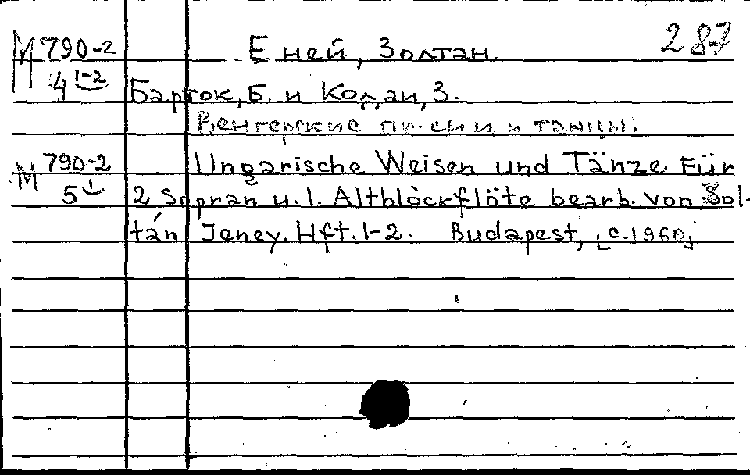 М 790-2 Еней, Золтан. 287
4 1-2 Барток, Б. и Кодаи, З.
Венгерские песни и танцы.
М 790-2 Ungarische Weisen und Tänze Für
5 1 2 Sopran u. 1. Altblockflöte bearb. von Sol-
tán Jeney. Hft. 1-2. Budapest, [c. 1960]